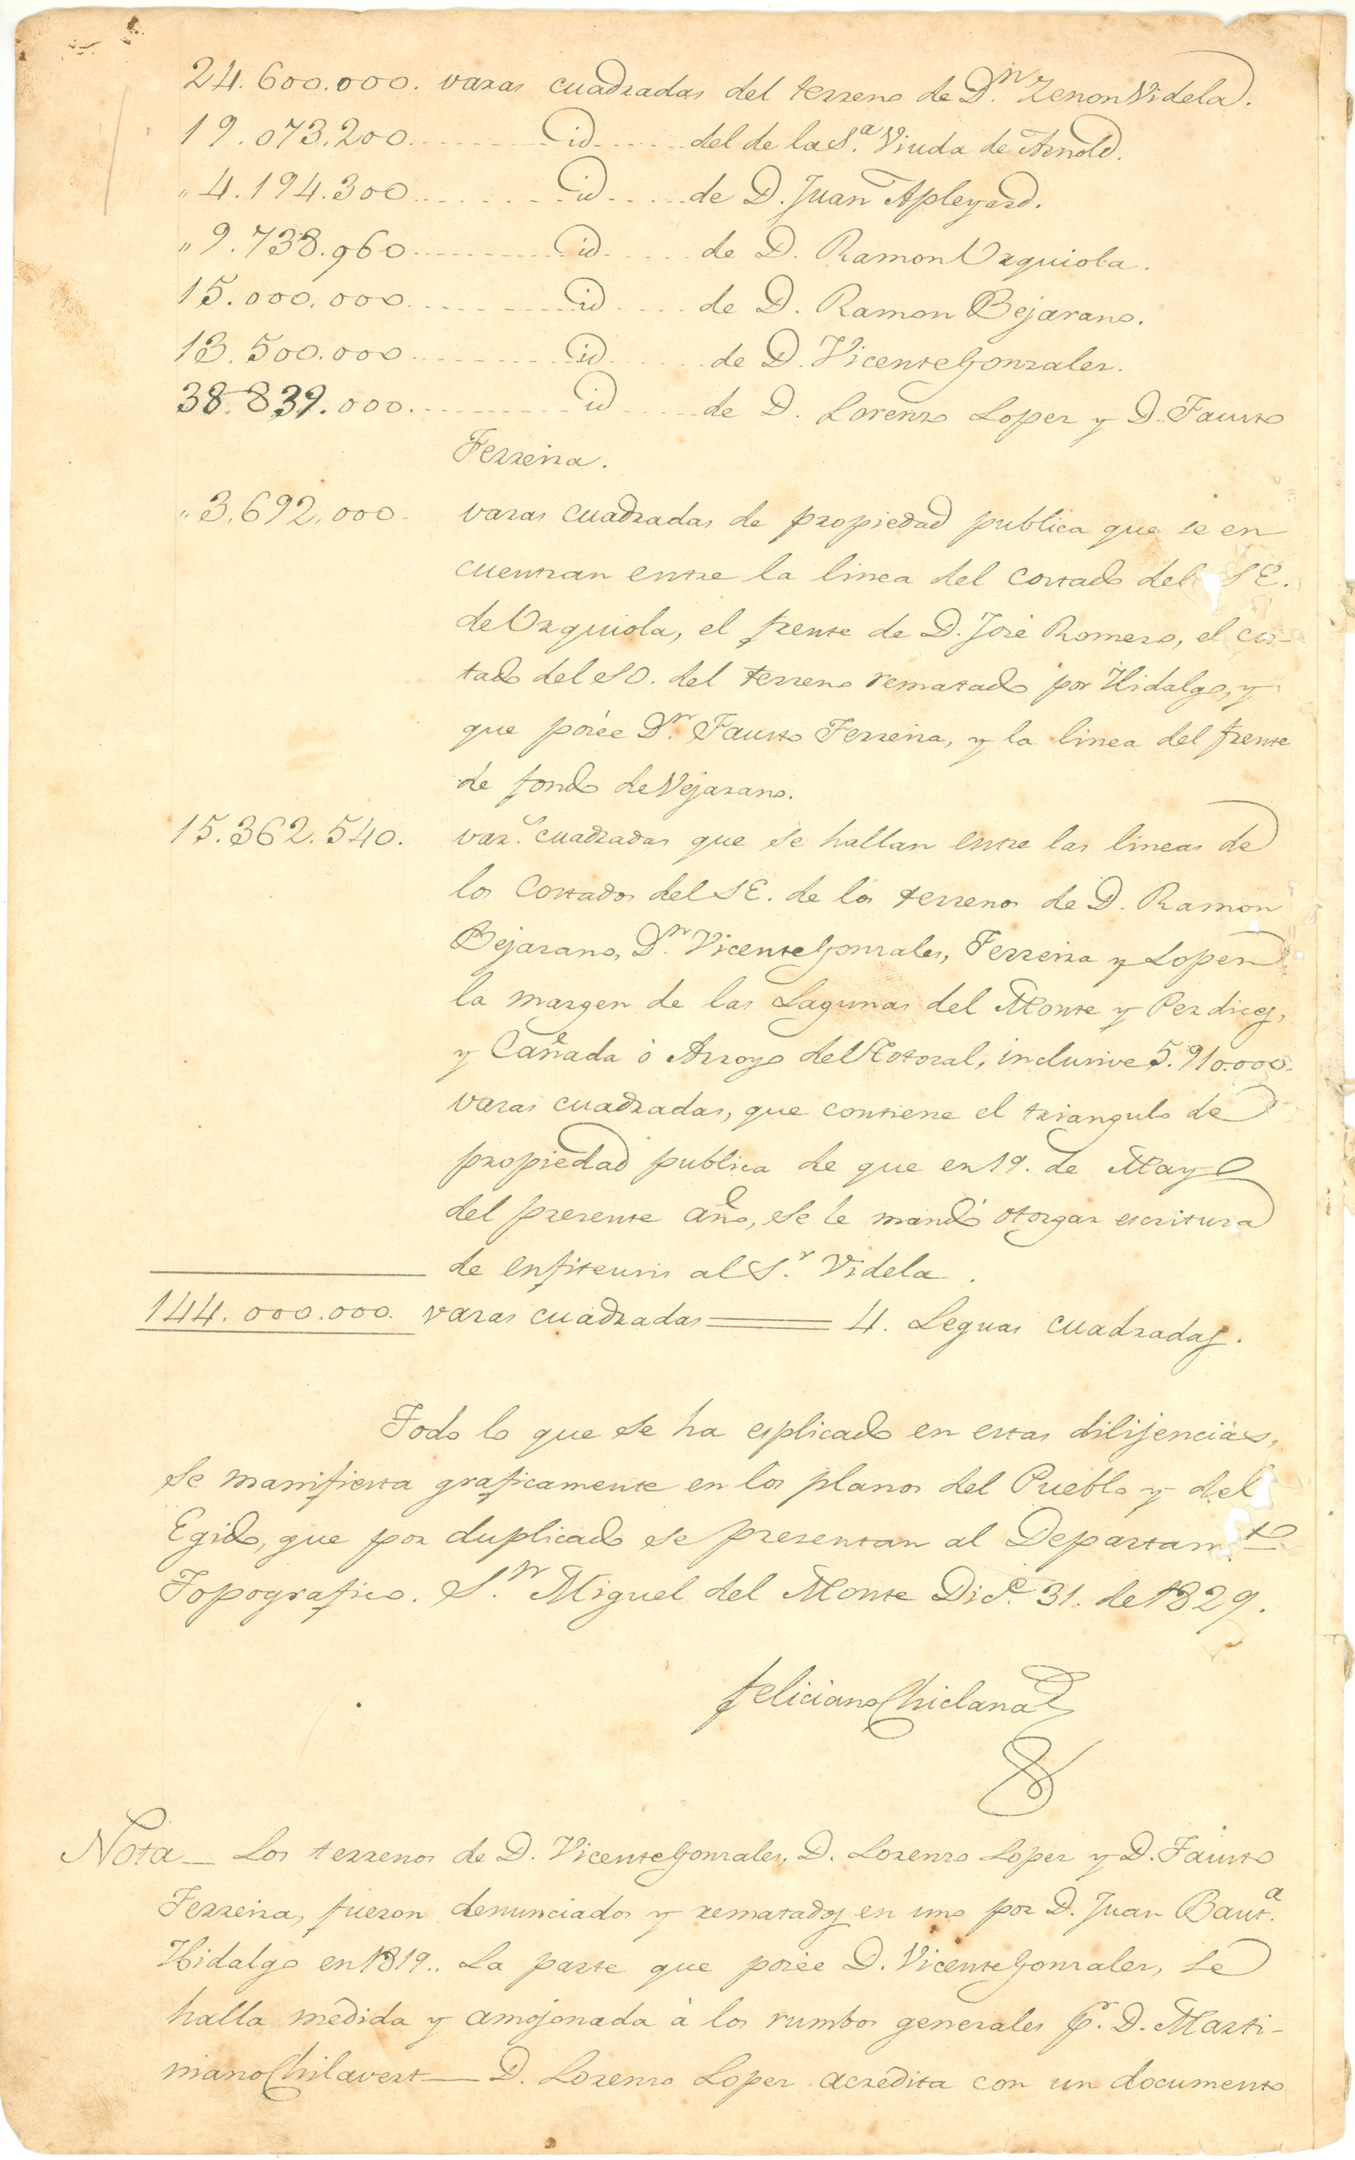 24.600.000. varas cuadradas del terreno de D.n Zenon Videla.
19.073.200. id del de la S.a Viuda de Arnold.
" 4.194.300 id de D. Juan Apleyard.
" 9.738.960 id de D. Ramon Urquiola.
15.000.000 id de D. Ramon Bejarano.
13.500.000 id de D. Vicente Gonzales.
38.839.000. id de D. Lorenzo Lopez y D. Fausto
Ferreira.
" 3.692.000. varas cuadradas de propiedad publica que se en
cuentran entre la linea del costado del S E.
de Urquiola, el frente de D. José Romero, el cos-
tado del S O. del terreno rematado por Hidalgo, y
que posée D.n Fausto Ferreira, y la linea del frente
de fondo de Vejarano.
15.362.540. var.s cuadradas que se hallan entre las lineas de
los Costados del S E. de los terrenos de D. Ramon
Bejarano, D.n Vicente Gonzales, Ferreira y Lopez
la margen de las Lagunas del Monte y Perdices,
y Cañada ó Arroyo del Totoral, inclusive 5.910.000.
varas cuadradas, que contiene el triangulo de
propiedad publica de que en 19. de Mayo
del presente año, se le mandó otorgar escritura
de enfiteusis al S.r Videla.
144.000.000. varas cuadradas = 4. Leguas cuadradas.
Todo lo que se ha esplicado en estas dilijencias,
se manifiesta graficamente en los planos del Pueblo y del
Egido, que por duplicado se presentan al Departam.to
Topografico. S.n Miguel del Monte Dic.e 31. de 1829.
Feliciano Chiclana
Nota_ Los terrenos de D. Vicente Gonzales, D. Lorenzo Lopez y D. Fausto
Ferreira, fueron denunciados y rematados en uno por D. Juan Baut.a
Hidalgo en 1819.. La parte que posée D. Vicente Gonzales, se
halla medida y amojonada á los rumbos generales p.r D. Marti-
niano Chilavert — D. Lorenzo Lopez acredita con un documento